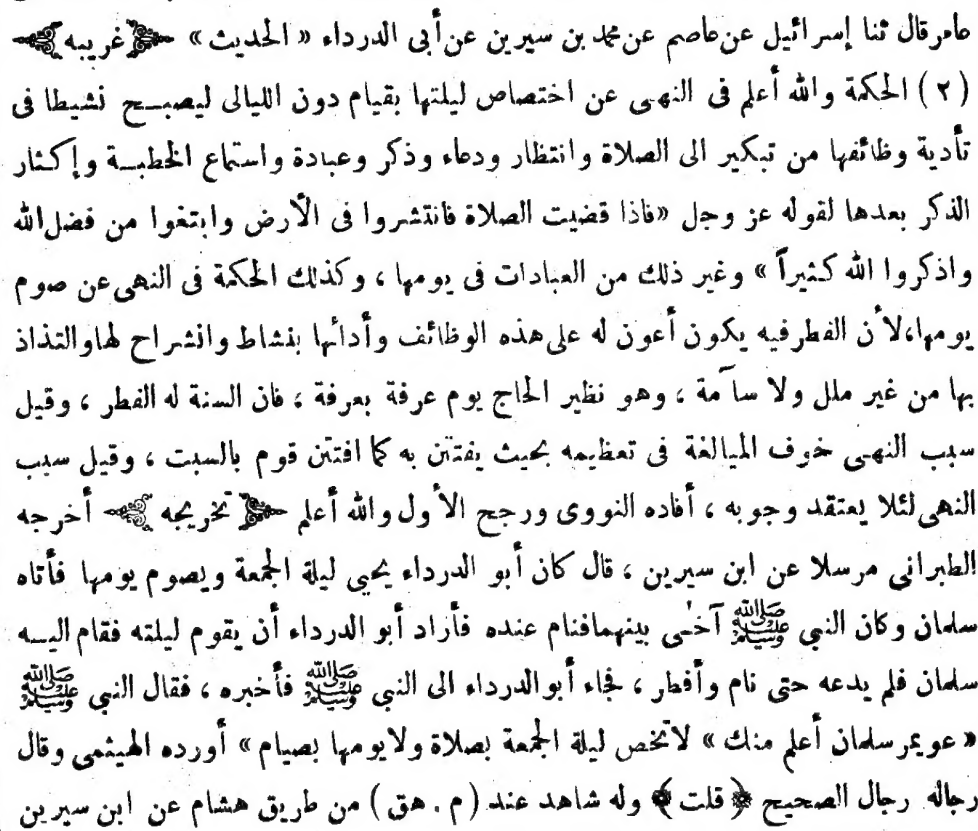 عامر قال ثنا إسرائيل عن عاصم عن محمد بن سيرين عن أبى الدرداء « الحديث » غريبه
(٢) الحكمة والله أعلم فى النهى عن اختصاص ليلتها بقيام دون الليالى ليصبح نشيطا فى
تأدية وظائفها من تبكير الى الصلاة وانتظار ودعاء وذكر وعبادة واستماع الخطبة وإكثار
الذكر بعدها لقوله عز وجل «فاذا قضيت الصلاة فانتشروا فى الأرض وابتغوا من فضل الله
واذكروا الله كثيراً » وغير ذلك من العبادات فى يومها ، وكذلك الحكمة فى النهى عن صوم
يومها،لأن الفطر فيه يكون أعون له على هذه الوظائف وأدائها بنشاط وانشراح لها والتذاذ
بها من غير ملل ولا سآمة ، وهو نظير الحاج يوم عرفة بعرفة ، فان السنة له الفطر ، وقيل
سبب النهى خوف الميالغة فى تعظيمه بحيث يفتتن به كما افتتن قوم بالسبت ، وقيل سبب
النهى لئلا يعتقد وجوبه ، أفاده النووى ورجح الأول والله أعلم تخريجه أخرجه
الطبرانى مرسلا عن ابن سيرين ، قال كان أبو الدرداء يحيى ليلة الجمعة ويصوم يومها فأتاه
سلمان وكان النبي ﷺ آخى بينهما فنام عنده فأراد أبو الدرداء أن يقوم ليلته فقام اليه
سلمان فلم يدعه حتى نام وأفطر ، فجاء أبو الدرداء الى النبي ﷺ فأخبره ، فقال النبي ﷺ
« عويمر سلمان أعلم منك » لاتخص ليلة الجمعة بصلاة ولا يومها بصيام » أورده الهيثمى وقال
رجاله رجال الصحيح ﴿ قلت ﴾ وله شاهد عند ( م . هق ) من طريق هشام عن ابن سيرين